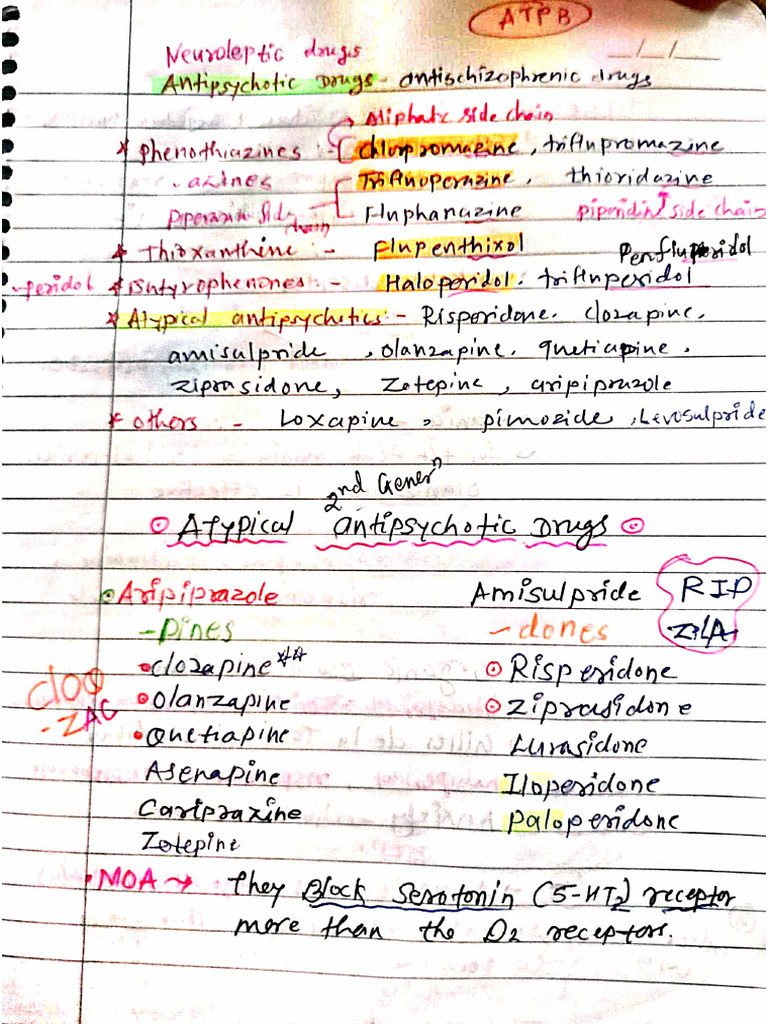 ATPB
__/__/__
Neuroleptic drugs
Antipsychotic Drugs - antischizophrenic drugs
Aliphatic side chain
* Phenothiazines :- Chlorpromazine, triflupromazine
-azines Trifluoperazine, thioridazine
piperazin side chain Fluphanazine piperidin side chain
* Thioxanthine :- Flupenthixol Penfluperidol
-peridol * Butyrophenones :- Haloperidol, trifluperidol
* Atypical antipsychotics :- Risperidone, clozapine,
amisulpride, olanzapine, quetiapine,
ziprasidone, Zotepine, aripiprazole
* others - Loxapine, pimozide, Levosulpride
2nd Genern
Atypical antipsychotic Drugs
Aripiprazole Amisulpride RIP
-pines -dones ZILA
clozapine** Risperidone
cloQ
Olanzapine Ziprasidone
-ZAC
Quetiapine Lurasidone
Asenapine Iloperidone
Cariprazine Paloperidone
Zotepine
MOA → they Block Serotonin (5-HT2) receptor
more than the D2 receptors.